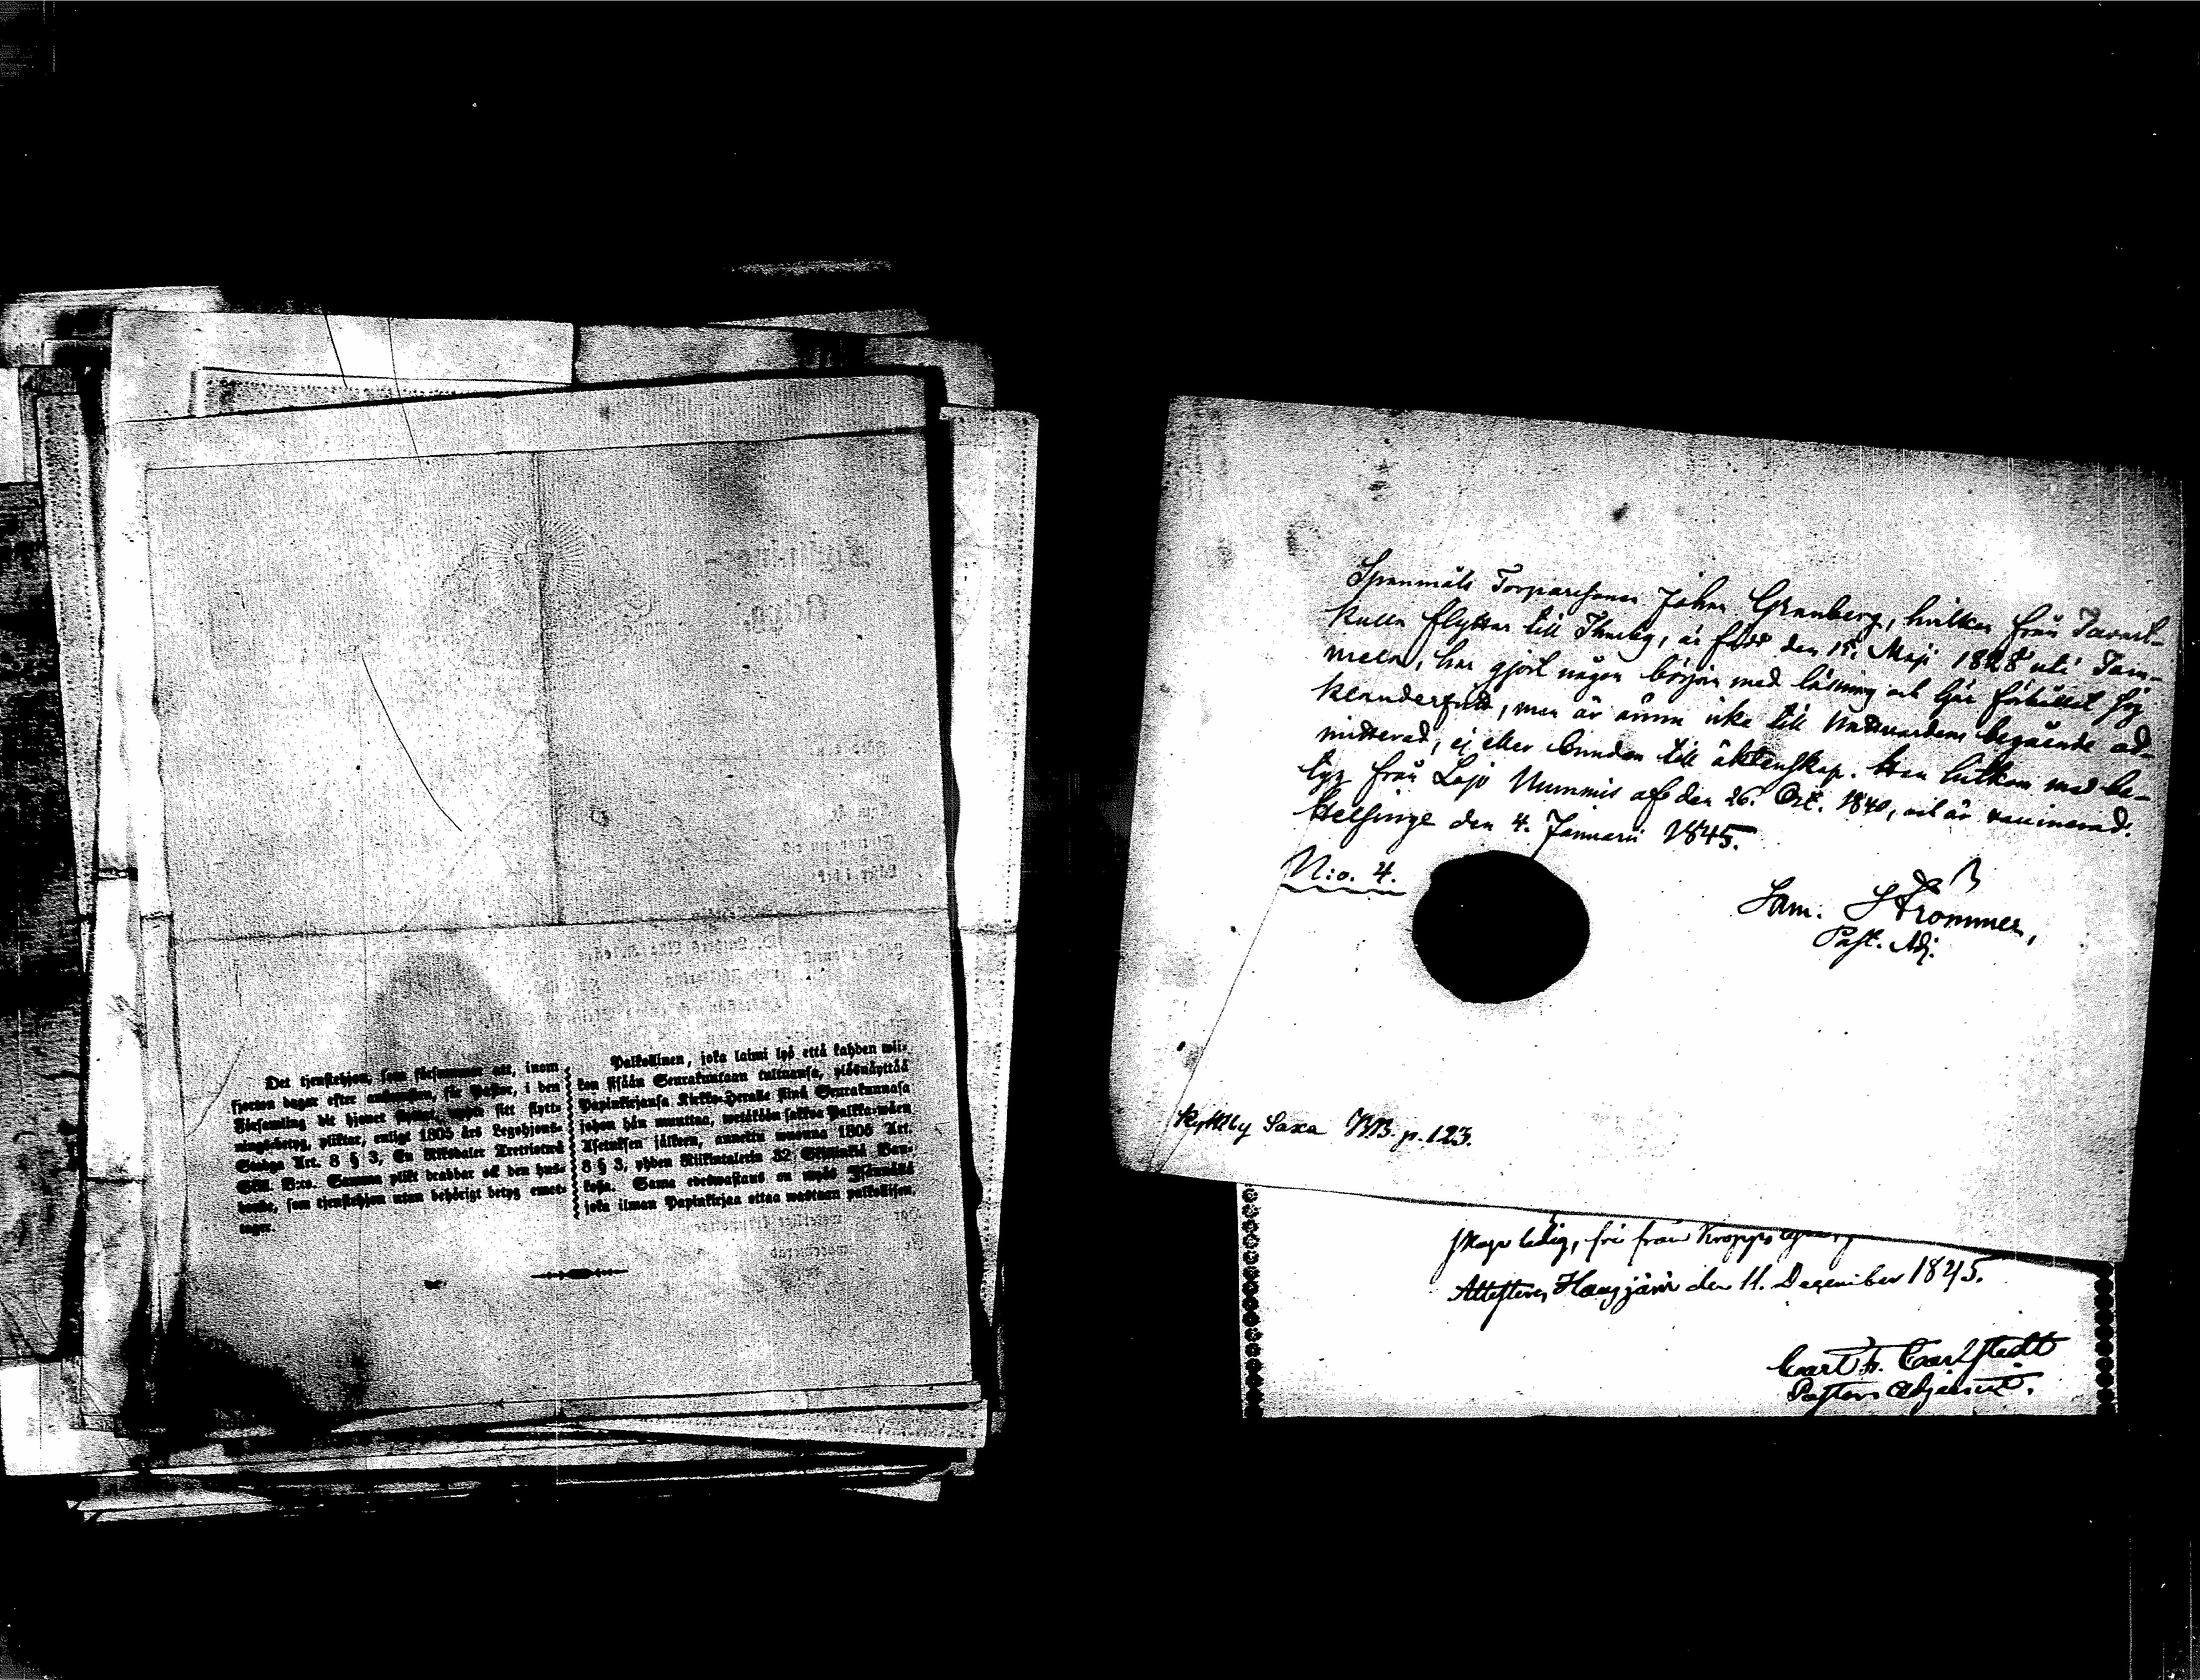 Det tjenstehjon, som försummar att, inom
fjorton dagar efter ankomsten, för Pastor, i den
Församling dit hjonet flyttat, uppte sitt flytt-
ningsbetyg, pliktar, enligt 1805 års Legohjons-
Stadga Art. 8 § 3, En Riksdaler Tretriotwå
Skill. B:co. Samma plikt drabbar ock den hus-
bonde, som tjenstehjon utan behörigt betyg emot-
tager.
Palkollinen, joka laimi lyö että kahden wii-
kon sisään Seurakuntaan tultuansa, ylösnäyttää
Papinkirjansa Kirkko-Herralle siinä Seurakunnasa
johon hän muuttaa, wetäköön sakkoa Palkka-wäen
Asetuksen jälkeen, annettu wuonna 1805 Art.
8 § 3, yhden Riikintalerin 32 Skillinkiä Ban-
kosa. Sama edeswastaus on myös Isännällä
joka ilman Papinkirjaa ottaa wastaan palkollisen.
Torparesonen Johan Granberg, hvilken från Tavast-
kulla flyttar till Thusby, är född den 15. Maji 1828 uti Tam-
mela, har gjort någon början med läsning och här förhållit sig
klanderfritt, men är ännu icke till Nattvardens begående ad-
mitterad, ej eller bunden till äktenskap. Han hitkom med be-
tyg från Lojo Nummis af den 26. Oct. 1840, och är vaccinerad.
Helsinge den 4. Januarii 1845.
N:o. 4.
Sam. Strömmer,
Past. Adj.
Kyttby Saxa NB. p. 123.
skap ledig, fri från Kropps
Attesterar, Hausjärvi den 11. December 1845.
Carl F. Carlstedt
Pastors Adjunct.